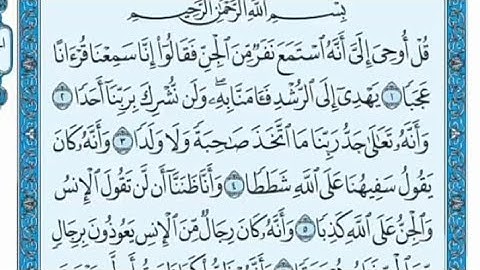 بِسْمِ اللَّهِ الرَّحْمَٰنِ الرَّحِيمِ
قُلْ أُوحِيَ إِلَيَّ أَنَّهُ ٱسْتَمَعَ نَفَرٌ مِّنَ ٱلْجِنِّ فَقَالُوٓا۟ إِنَّا سَمِعْنَا قُرْءَانًا
عَجَبًا ١ يَهْدِىٓ إِلَى ٱلرُّشْدِ فَـَٔامَنَّا بِهِۦ ۖ وَلَن نُّشْرِكَ بِرَبِّنَآ أَحَدًا ٢
وَأَنَّهُۥ تَعَٰلَىٰ جَدُّ رَبِّنَا مَا ٱتَّخَذَ صَٰحِبَةً وَلَا وَلَدًا ٣ وَأَنَّهُۥ كَانَ
يَقُولُ سَفِيهُنَا عَلَى ٱللَّهِ شَطَطًا ٤ وَأَنَّا ظَنَنَّآ أَن لَّن تَقُولَ ٱلْإِنسُ
وَٱلْجِنُّ عَلَى ٱللَّهِ كَذِبًا ٥ وَأَنَّهُۥ كَانَ رِجَالٌ مِّنَ ٱلْإِنسِ يَعُوذُونَ بِرِجَالٍ